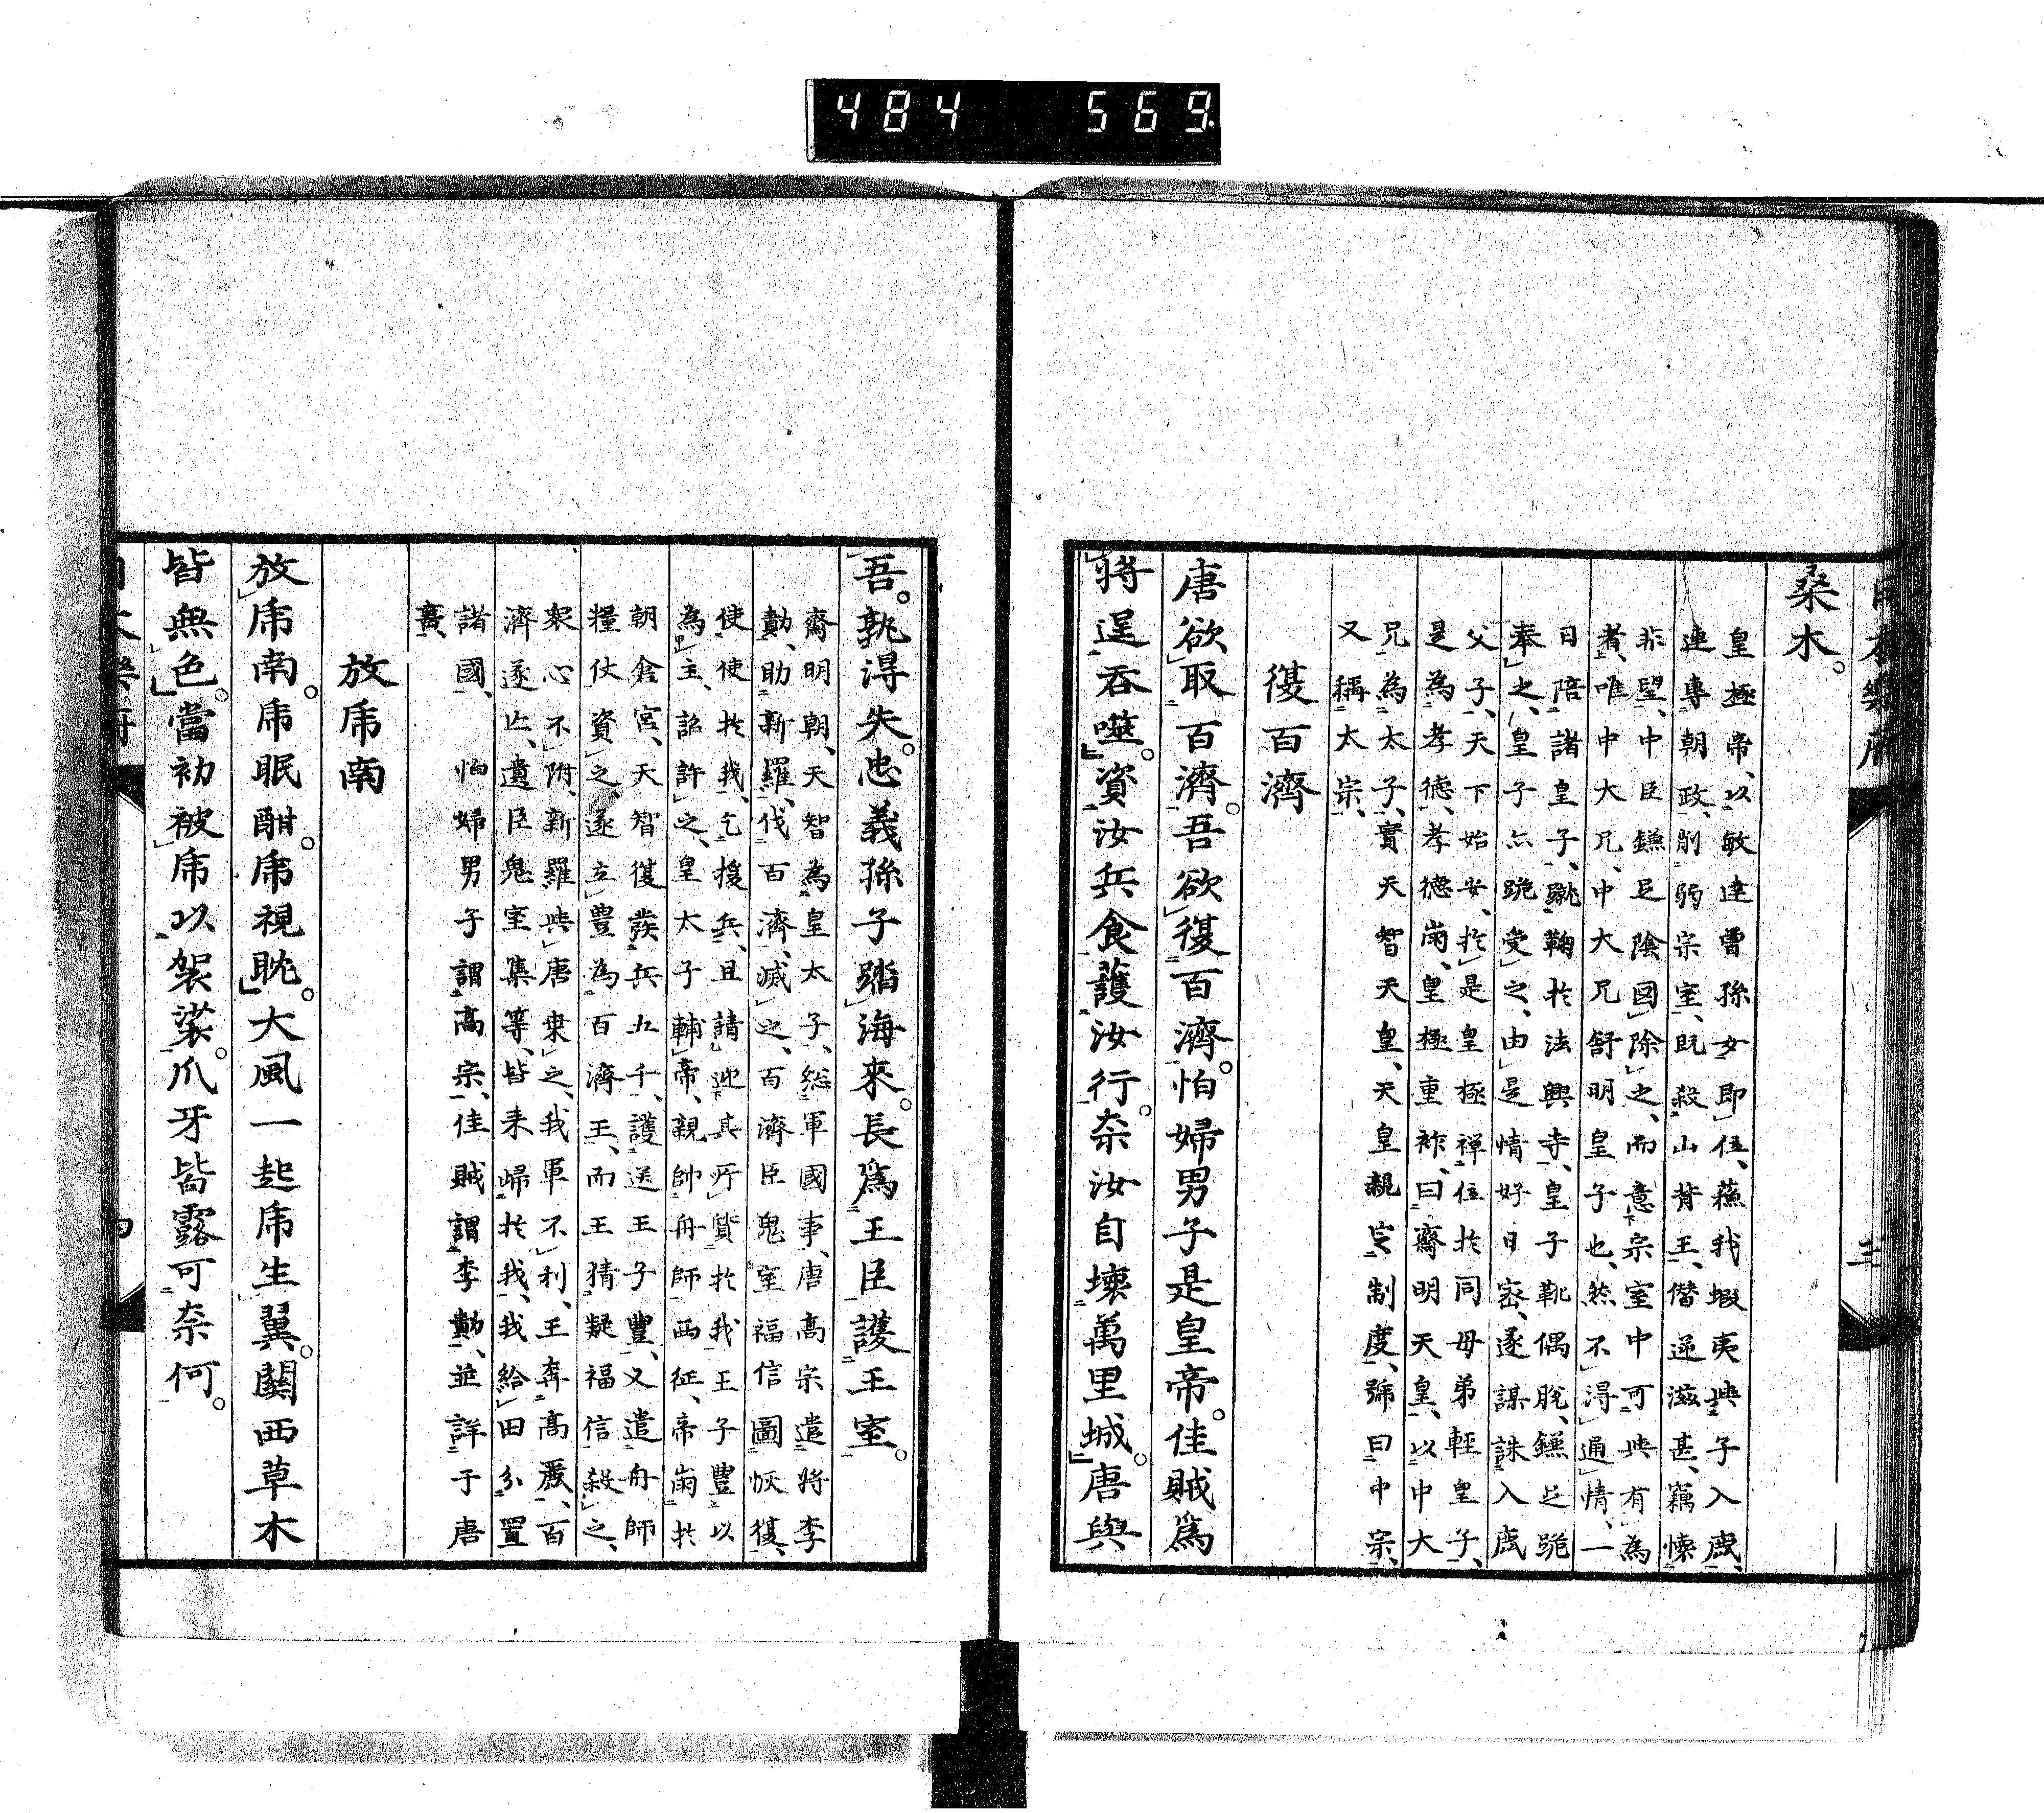 484 569
桑木。
皇極帝、以敏達曾孫女即位、蘇我蝦夷與子入鹿、
連專朝政、削弱宗室、既殺山背王、僭逆滋甚、竊懷
非望、中臣鎌足陰図除之、而意宗室中可與有為
者、唯中大兄、中大兄舒明皇子也、然不得通情、一
日陪諸皇子、蹴鞠於法興寺、皇子靴偶脫、鎌足跪
奉之、皇子亦跪受之、由是情好日密、遂謀誅入鹿
父子、天下始安、於是皇極禪位於同母弟輕皇子、
是為孝德、孝德崩、皇極重祚、曰齋明天皇、以中大
兄為太子、實天智天皇、天皇親定制度、號曰中宗、
又稱太宗、
復百濟
唐欲取百濟。吾欲復百濟。怕婦男子是皇帝。佳賊爲
將逞吞噬。資汝兵食護汝行。奈汝自壞萬里城。唐與
吾。孰得失。忠義孫子踏海來。長爲王臣護王室。
齋明朝、天智為皇太子、総軍國事、唐高宗遣將李
勣、助新羅、伐百濟、滅之、百濟臣鬼室福信圖恢復、
使使於我、乞援兵、且請迎其所質於我王子豐以
為主、詔許之、皇太子輔帝、親帥舟師西征、帝崩於
朝倉宮、天智復發兵九千、護送王子豐、又遣舟師
糧仗資之、遂立豐為百濟王、而王猜疑福信殺之、
衆心不附、新羅與唐乘之、我軍不利、王奔高麗、百
濟遂亡、遺臣鬼室集等、皆来歸於我、我給田分置
諸國、 怕婦男子謂高宗、佳賊謂李勣、並詳于唐
書、
放虎南
放虎南。虎眠酣。虎視眈。大風一起虎生翼。關西草木
皆無色。當初被虎以袈裟。爪牙皆露可奈何。